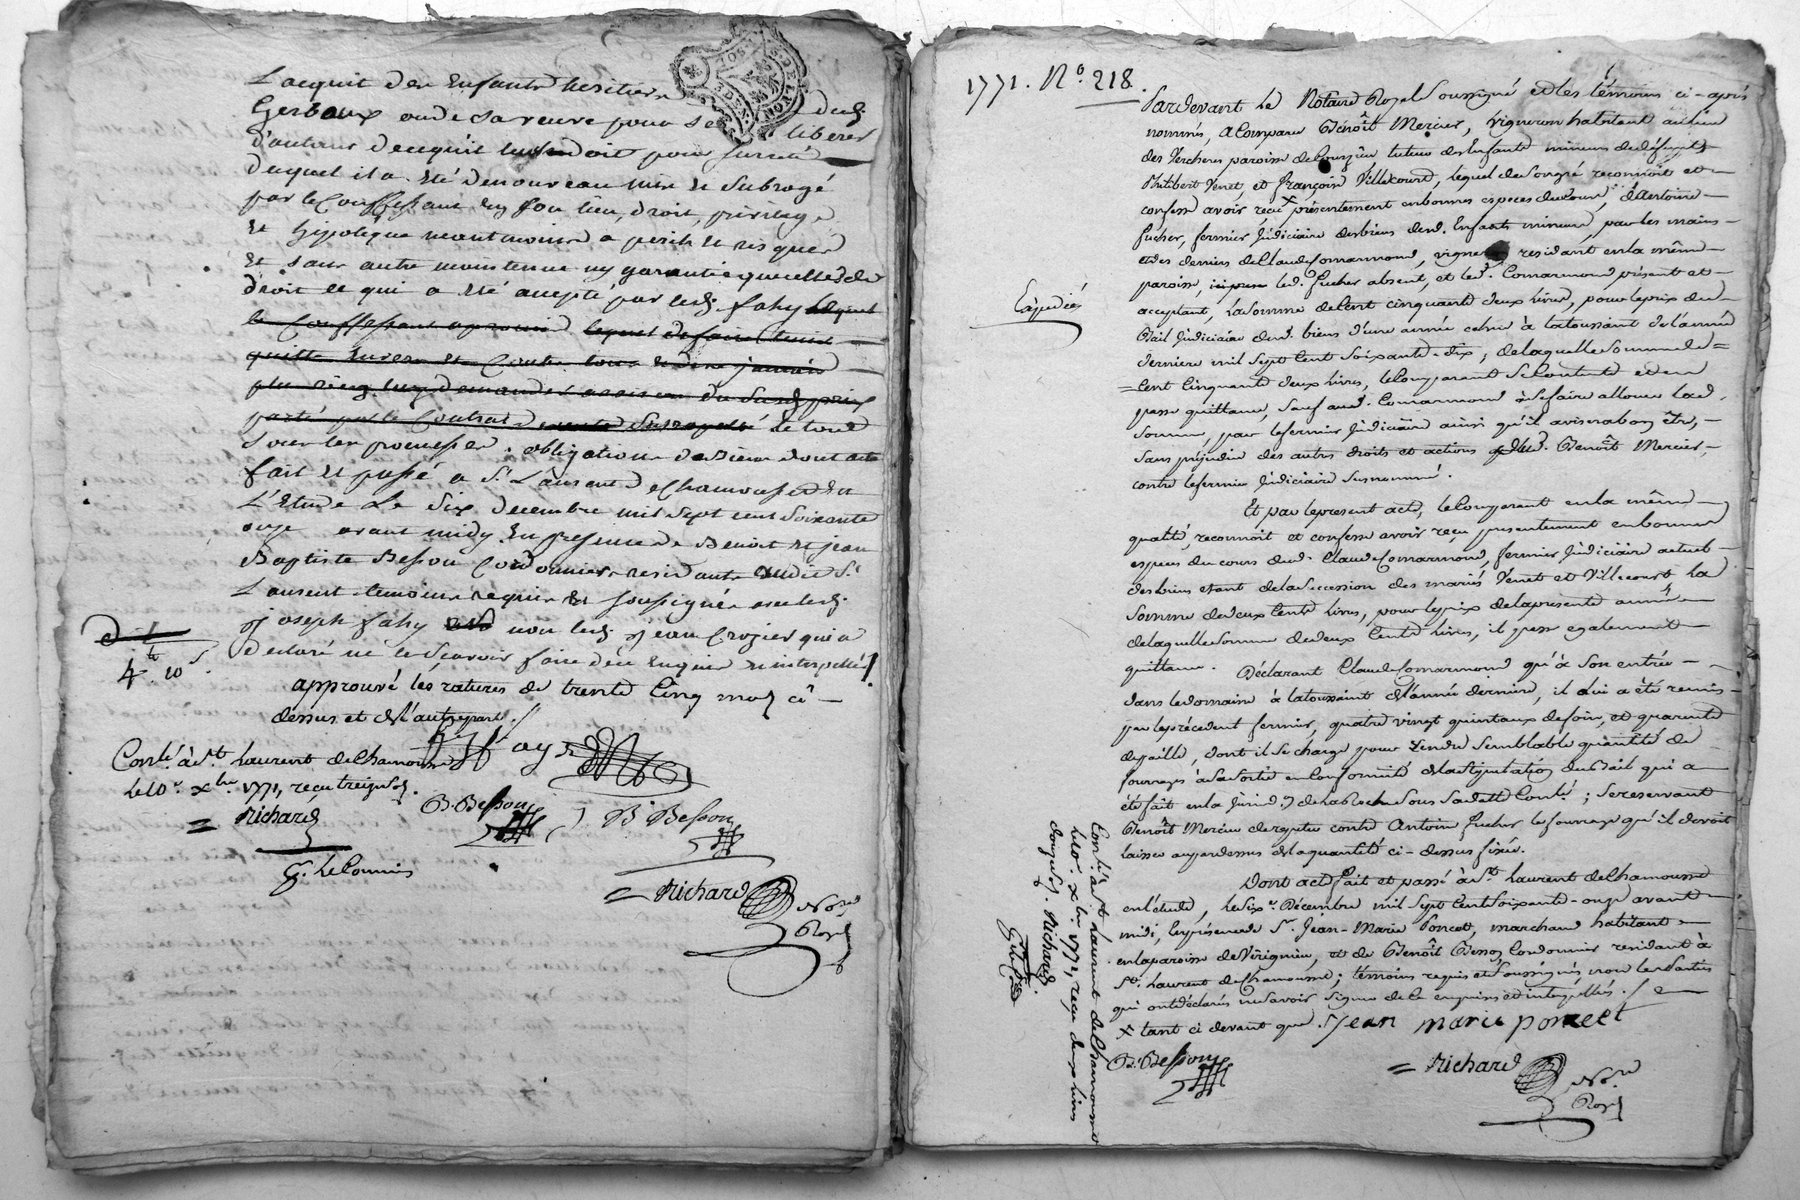 L'acquit des Enfants heritiers dud.
Gerbaux ou de sa veuve pour se liberer
d'autant d'acquit pour sureté
duquel il a eté denouveau mis et Subrogé
par le Conffessant en son lieu, droit, privilege
et hipoteque neantmoins a perils et risques
et sans autre maintenue ny garantie que celles de
droit ce qui a eté accepté par led. fahy lequel
le Conffessant
quitte envers et Contre tous
plus rien luy demander
porté par le Contrat de vente le tout
sous les promesses, obligations dont acte
fait et passé a St. Laurent de Chamousset en
L'Etude Le Six decembre mil sept cent soixante
onze avant midy En presence de Benoit et jean
Baptiste Besson Cordonniers residants audit St.
Laurent temoins requis et soussignés avec led.
joseph fahy non led. jean Crozier qui a
declaré ne le sçavoir faire de ce enquis et interpellé
4 lt 10 s.
approuvé les ratures de trente Cinq mots ci-
dessus et de l'autre part.
Conté. à St. Laurent de Chamousset
le 10e. xbre 1771, reçu treize sols.
= Richard
B. Besson
B Besson
= Richard
Nore.
Royal
1771. No. 218.
Pardevant le Notaire Royal Soussigné et les témoins ci-après
nommés, a Comparu Benoît Mercier, vigneron habitant au lieu
des Vercheres paroisse de Courzieu, tuteur des Enfants mineurs de défunts
Philibert Venet, et Françoise Villecourt, lequel de son gré reconnoit et
confesse avoir reçu x présentement en bonnes especes du Cour, d'Antoine
fucher, fermier Judiciaire des biens desd. Enfants mineurs, par les mains
et des deniers de Claude Comarmond, vigneron residant en la même
paroisse, led. fucher absent, et led. Comarmond présent et
acceptant, la somme de Cent cinquante deux livres, pour le prix du
Bail Judiciaire desd. biens d'une année echue à la toussaint de l'année
derniere mil sept Cent Soixante-dix, de laquelle Somme de
Cent Cinquante deux livres, le Comparant se Contente et en
passe quittance, sauf aud. Comarmond à se faire allouer lad.
Somme, par le fermier Judiciaire ainsi qu'il avisera bon être,
Sans préjudice des autres droits et actions dud. Benoît Mercier,
contre le fermier Judiciaire susnommé.
Expedié
Et par le present acte, le Comparant en la même
qualité, reconnoit et confesse avoir reçu presentement en bonnes
especes du cours dud. Claude Comarmond, fermier Judiciaire actuel
des biens etant de la Succession des mariés Venet et Villecourt, la
Somme de deux Cents livres, pour le prix de la présente année
de laquelle Somme de deux Cents livres, il passe egalement
quittance. Déclarant Claude Comarmond qu'à Son entrée
dans le domaine à la toussaint de l'année derniere, il lui a été remis
par le précedent fermier, quatre vingt quintaux de foin, et quarante
de paille, dont il se charge pour rendre semblable quantité de
fourrages à Sa Sortie en Conformité de la Stipulation du Bail qui a
été fait en la Jurid. de la Roche Sous Sa datte Conté.; se reservant
Benoît Mercier de repeter contre Antoine fucher le fourrage qu'il devoit
laisser au pardessus de la quantité ci-dessus fixée.
Dont acte fait et passé à St. Laurent de Chamousset
en l'étude, le Six e. Décembre mil sept Cent Soixante-onze avant
midi, En présence de Sr. Jean-Marie Poncet, marchand habitant
en la paroisse de Virignieu, et de Benoît Besson Cordonnier residant à
St. Laurent de Chamousset; témoins requis et Soussignés non les Parties
qui ont déclarés ne savoir signer de ce enquises et interpellés.
x tant ci devant que. Jean marie poncet
B. Besson
= Richard
Nore.
Royal
Conté. à St. Laurent de Chamousset
le 10e. xbre. 1771, reçu deux livres
douze sols. Richard